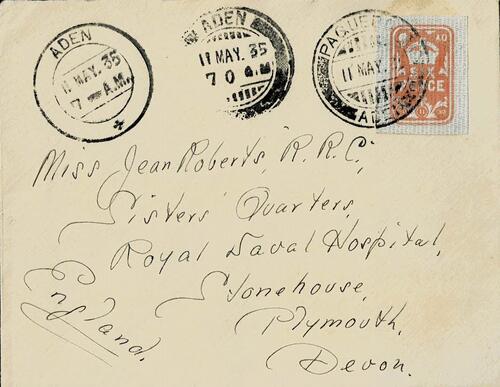 ADEN
11 MAY. 35
7 A.M.
ADEN
11 MAY. 35
7 0 A.M
PAQUEBOT
11 MAY
ADEN
SIX
PENCE
Miss Jean Roberts, R.R.C,
Sisters Quarters,
Royal Naval Hospital,
Stonehouse,
Plymouth,
Devon.
England.